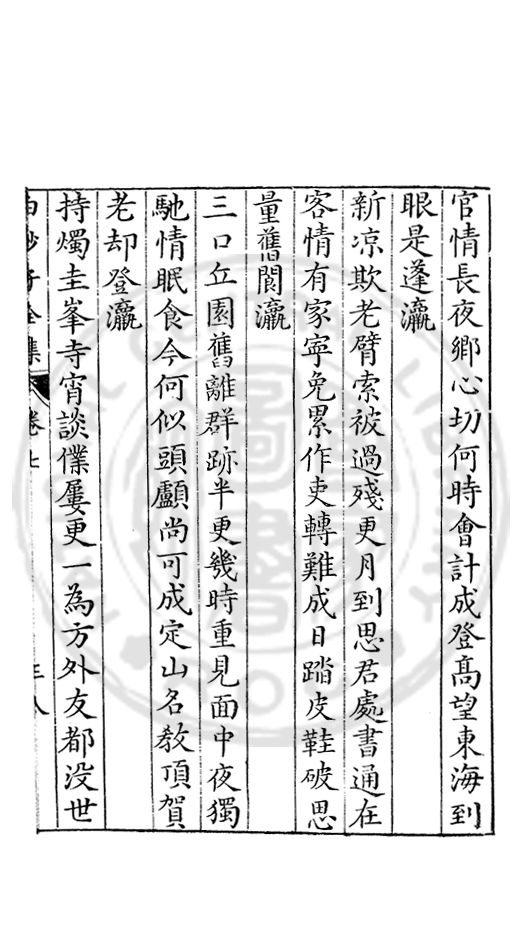 官情長夜鄉心切何時會計成登高望東海到
眼是蓬瀛
新凉欺老臂索被過殘更月到思君處書通在
客情有家寧免累作吏轉難成日踏皮鞋破思
量舊閬瀛
三口丘園舊離群跡半更幾時重見面中夜獨
馳情眠食今何似頭顱尚可成定山名教頂賀
老却登瀛
持燭圭峯寺宵談僕屢更一為方外友都没世
白沙子全集 卷七